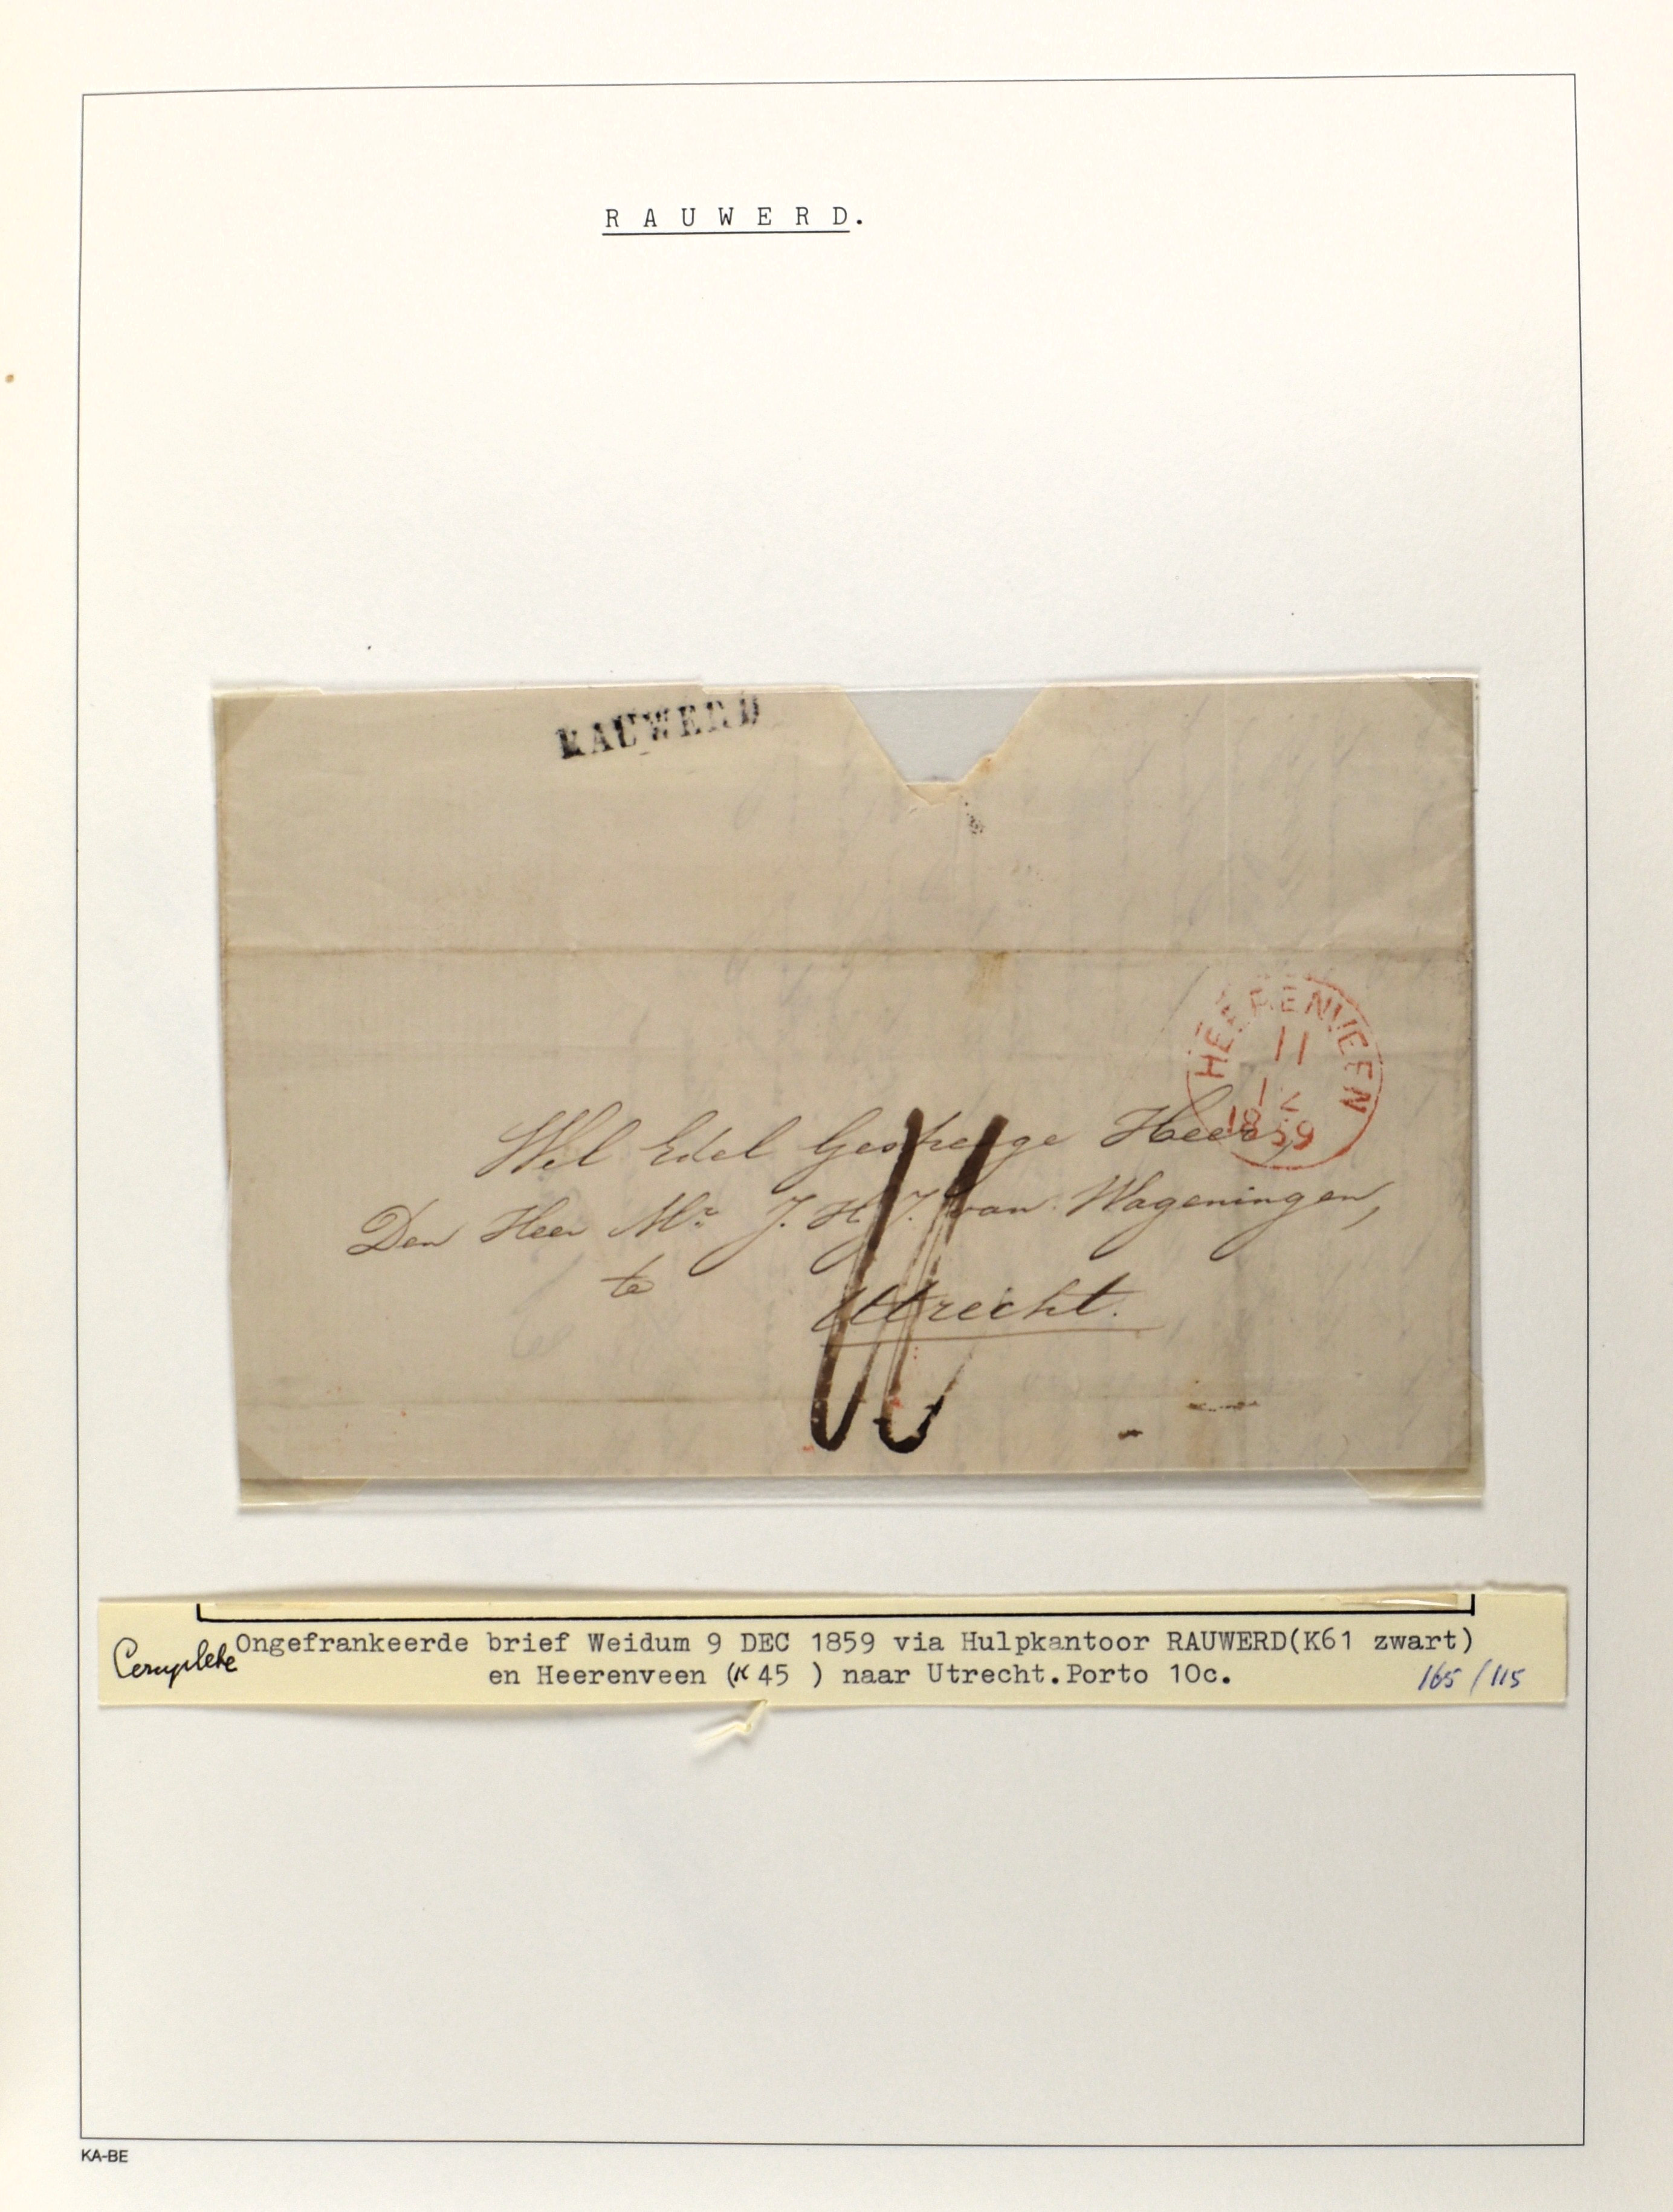 R A U W E R D.
RAUWERD
HEERENVEEN
11
12
1859
Wel Edel Gestrenge Heer,
Den Heer Mr J. H. J. van Wageningen,
te
Utrecht.
Complete Ongefrankeerde brief Weidum 9 DEC 1859 via Hulpkantoor RAUWERD(K61 zwart)
en Heerenveen (K 45 ) naar Utrecht.Porto 10c.
165/115
KA-BE